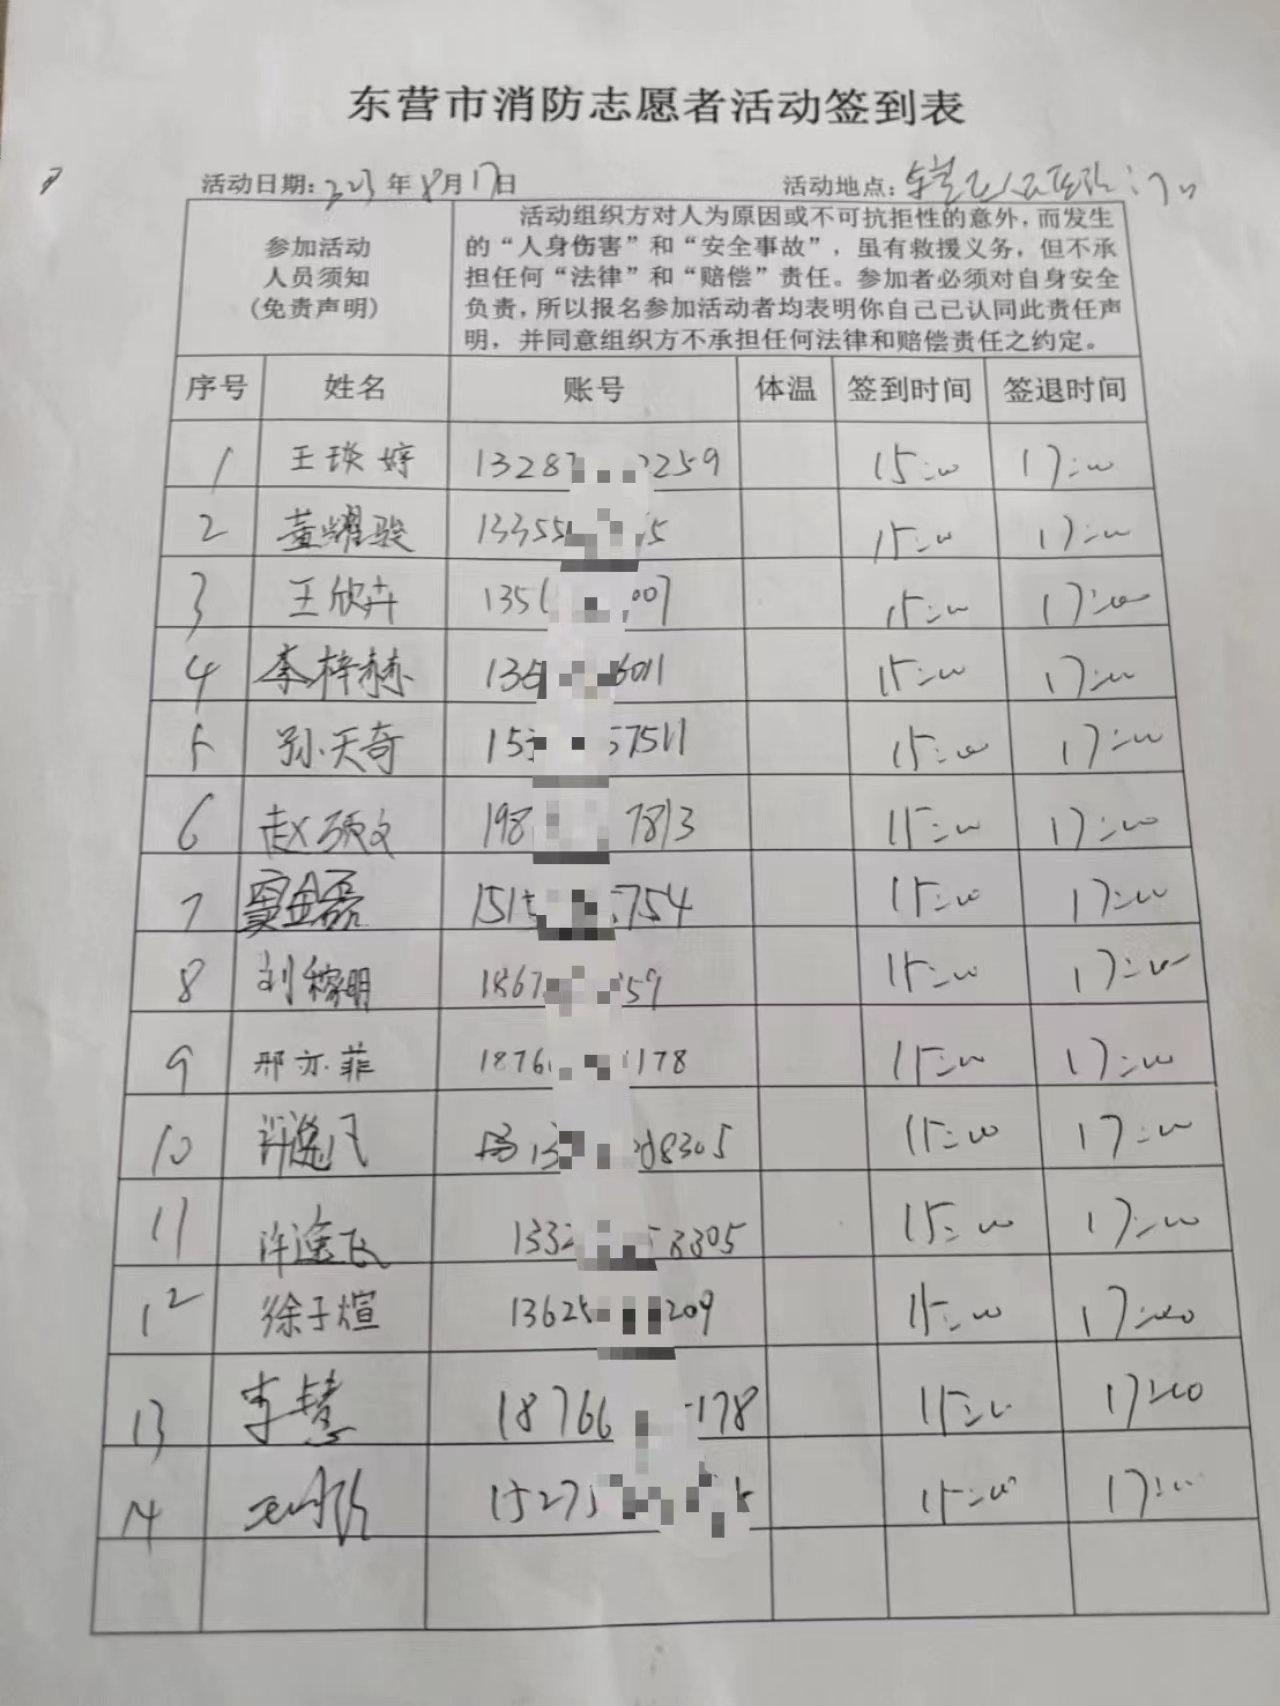 东营市消防志愿者活动签到表
活动日期: 2023年8月17日 活动地点:
参加活动
人员须知
(免责声明)
活动组织方对人为原因或不可抗拒性的意外,而发生
的“人身伤害”和“安全事故”,虽有救援义务,但不承
担任何“法律”和“赔偿”责任。参加者必须对自身安全
负责,所以报名参加活动者均表明你自己已认同此责任声
明,并同意组织方不承担任何法律和赔偿责任之约定。
序号 姓名 账号 体温 签到时间 签退时间
1 王琰婷 1328 2259 15:00 17:00
2 董耀骏 13355 5 15:00 17:00
3 王欣卉 135 007 15:00 17:00
4 李梓赫 136 6011 15:00 17:00
5 孙天奇 15 57511 15:00 17:00
6 赵硕文 198 7813 15:00 17:00
7 窦金磊 151 754 15:00 17:00
8 刘稼明 1867 59 15:00 17:00
9 邢亦菲 1876 178 15:00 17:00
10 许逸飞 13 8305 15:00 17:00
11 许逸飞 133 8305 15:00 17:00
12 徐子煊 13625 209 15:00 17:00
13 李慧 18766 178 15:00 17:00
14 1527 15:00 17:00